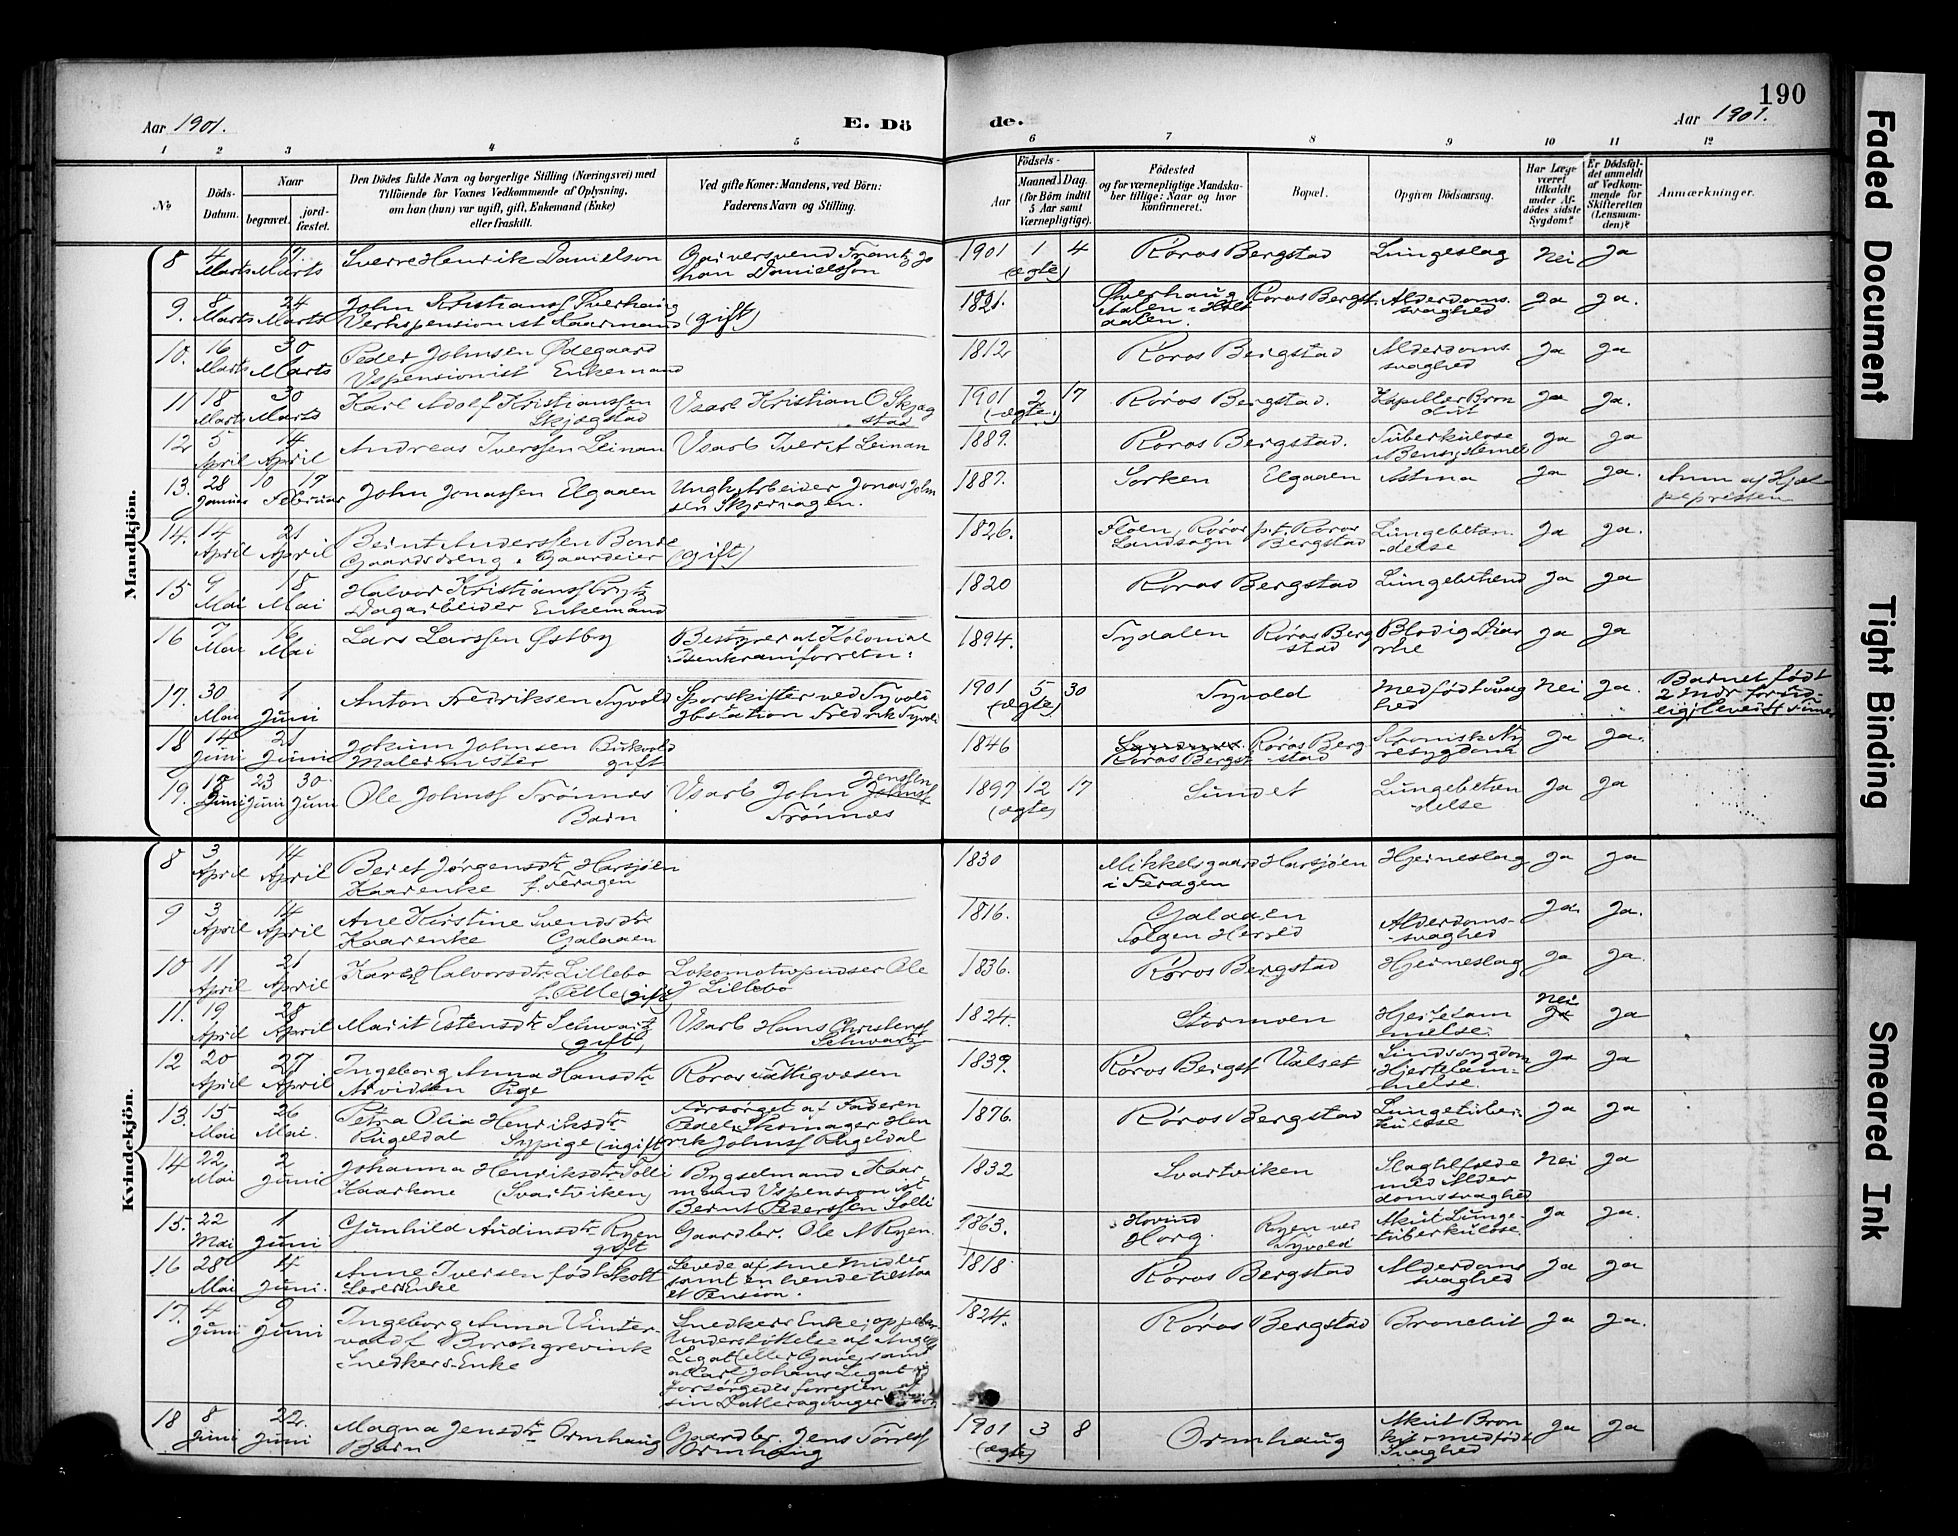 190
Aar 1901.
E. Dö
de.
Aar 1901.
1 2 3 4 5 6 7 8 9 10 11 12
No
Döds-Datum.
Naar
begravet.
jordfæstet.
Den Dödes fulde Navn og borgerlige Stilling (Næringsvei) med
Tilföiende for Voxnes Vedkommende af Oplysning,
om han (hun) var ugift, gift, Enkemand (Enke)
eller fraskilt.
Ved gifte Koner: Mandens, ved Börn:
Faderens Navn og Stilling.
Födsels-
Aar
Maaned Dag.
(for Börn indtil
5 Aar samt
Værnepligtige).
Födested
og for værnepligtige Mandskaber
tillige: Naar og hvor
konfirmeret.
Bopæl.
Opgiven Dödsaarsag.
Har Læge
været
tilkaldt
under Afdödes
sidste
Sygdom?
Er Dödsfaldet
anmeldt
af Vedkommende
for
Skifteretten
(Lensmanden)?
Anmærkninger.
Mandkjön.
8 4 Marts 17 Marts Sverre Henrik Danielson 1901 1 4 (ægte) Røros Bergstad Lungeslag Nei Ja
han Danielsson
9. 8 Marts 24 Marts John Kristianss Øverhaug (gift) 1821. Øverhaug Aalen i Holtaalen. Røros Bergst. Alderdomssvaghed Ja Ja.
10. 16 Marts 30 Marts Peder Johnsen Ødegaard 1812 Røros Bergstad Alderdomssvaghed Ja Ja
Vspensionist Enkemand
11 18 Marts 30 Marts Karl Adolf Kristianssen Skjøgstad Vsarb Kristian O Skjøgstad 1901 2 17 (ægte) Røros Bergstad. Kapillær Bron Ja Ja.
12 5 April 14 April Andreas Iverssen Leinan Vsarb Iver Leinan 1889. Røros Bergstad. Tuberkulose Ja Ja
13. 28 Januar 10 17 Februar John Jonassen Elgaaen Jonas Johnsen 1887. Sorken Elgaaen Astma Ja Ja.
14. 14 April 21 April Berint Anderssen Bonde Gaardeier (gift) 1826. Floen, Røros Landsogn p.t. Røros Bergstad Lungebetændelse Ja Ja.
15 9 Mai 18 Mai Halvor Kristianss 1820 Røros Bergstad Lungebetænd Ja Ja
Dagarbeider Enkemand
16 7 Mai 16 Mai Lars Larssen Østby Bestyrer at Kolonial 1894. Tydalen Røros Bergstad Blodig Diarrhe Ja Ja
17. 30 Mai 1 Juni Anton Fredriksen Tyvold Sporskifter ved Tyvold 1901 5 30 (ægte) Tyvold Medfødt svaghed Nei Ja. Barnet født
2 Mdr for
18 14 Juni 21 Juni Jokum Johnsen Malermester gift 1846 Røros Bergst Røros Bergstad Kronisk Nyresygdom Ja Ja.
19. 18 Juni 23 Juni 30 Juni Ole Johnss Trønnes Barn Vsarb John Jenssen Trønnes 1897 12 17 (ægte) Sundet Lungebetændelse Ja Ja
Kvindekjön.
8 3 April 14 April Beret Jørgensdtr Harsjøen Kaarenke f. Feragen 1830 Mikkelsgaard i Feragen Harsjøen Hjerneslag Ja Ja
9 3 April 14 April Ane Kirstine Svendsdtr Kaarenke Galaaen 1816. Galaaen Tolgen Herred Alderdomssvaghed Ja. Ja.
10 11 April 21 April Karen Halvorsdtr Lillebo (gift) Lokomotivpudser Ole J Lillebo 1836. Røros Bergstad Hjerneslag Ja Ja.
11. 19 April 28 April Marit Estensdtr Schwartz (gift) Vsarb Hans Christenss Schwartz 1824. Stormoen Hjertelammelse. Nei Ja
12 20 April 27 April Ingeborg Anna Hansdtr Arvidsen Pige Røros Fattigvæsen 1839. Røros Bergst Valset Sindssygdom Hjertelammelse. Ja Ja
13. 15 Mai 26 Mai. Petra Olia Henriksdtr Rugeldal Sypige (ugift) Forsørget af Faderen Skomager Henrik Johnss Rugeldal 1876. Røros Bergstad Lungetuberkulose Ja Ja
14 22 Mai 2 Juni Johanna Henriksdtr Solli Kaarkone (Svartviken) Bygselmand Kaarmand Vspensionist Bernt Pederssen Solli 1832 Svartviken Slagtilfælde med Alderdomssvaghed Nei Ja
15. 22 Mai 1 Juni Gunhild Audinsdtr Ryen gift Gaardbr. Ole N Ryen. 1863. Hovind Horg. Ryen ved Tyvold Akut Lungetuberkulose. Ja Ja.
16 28 Mai 4 Juni. Anne Iversen født Skott Enke Levede af sine Midler samt en hende tilstaaet Pension. 1818 Røros Bergstad Alderdomssvaghed Ja Ja
17. 4 Juni 9 Juni Ingeborg Anna Vintervold f Borchgrevink Snedkers-Enke Snedkers Enke; Understøttelse af Legat (eller Gave) samt Carl Johans Legat 1824. Røros Bergstad Bronchit Ja Ja.
18 8 Juni 22. Juni Magna Jensdtr Ormhaug Barn Gaardbr. Jens Ormhaug 1901 3 8 (ægte) Ormhaug Akut Bronkit medfødt Svaghed Ja Ja
Faded Document
Tight Binding
Smeared Ink